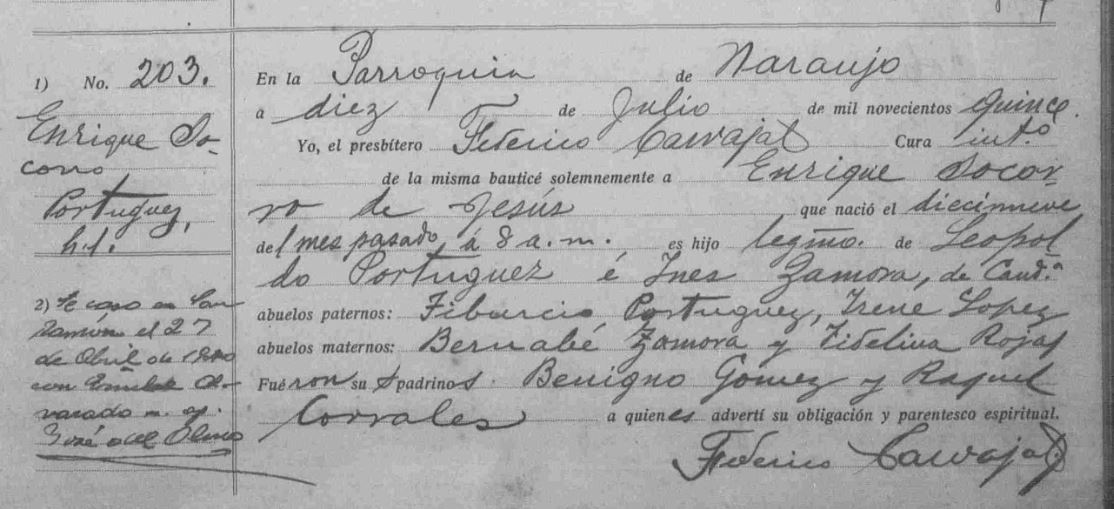 1) No. 203.
Enrique So-
corro
Portuguez,
h.l.
2) Se caso en San
Ramón el 27
de Abril de
con Al-
varado n. ap.
José del Olmo
En la Parroquia de Naranjo
a diez de Julio de mil novecientos quince.
Yo, el presbítero Federico Carvajal Cura intº
de la misma bauticé solemnemente a Enrique Socor-
ro de Jesús que nació el diecinueve
del mes pasado, á 8 a.m. es hijo legmo. de Leopol
do Portuguez é Ines Zamora, de Candª
abuelos paternos: Tiburcio Portuguez, Irene Lopez
abuelos maternos: Bernabé Zamora y Fidelina Rojas
Fuéron sus padrinos. Benigno Gómez y Raquel
Corrales a quienes advertí su obligación y parentesco espiritual.
Federico Carvajal